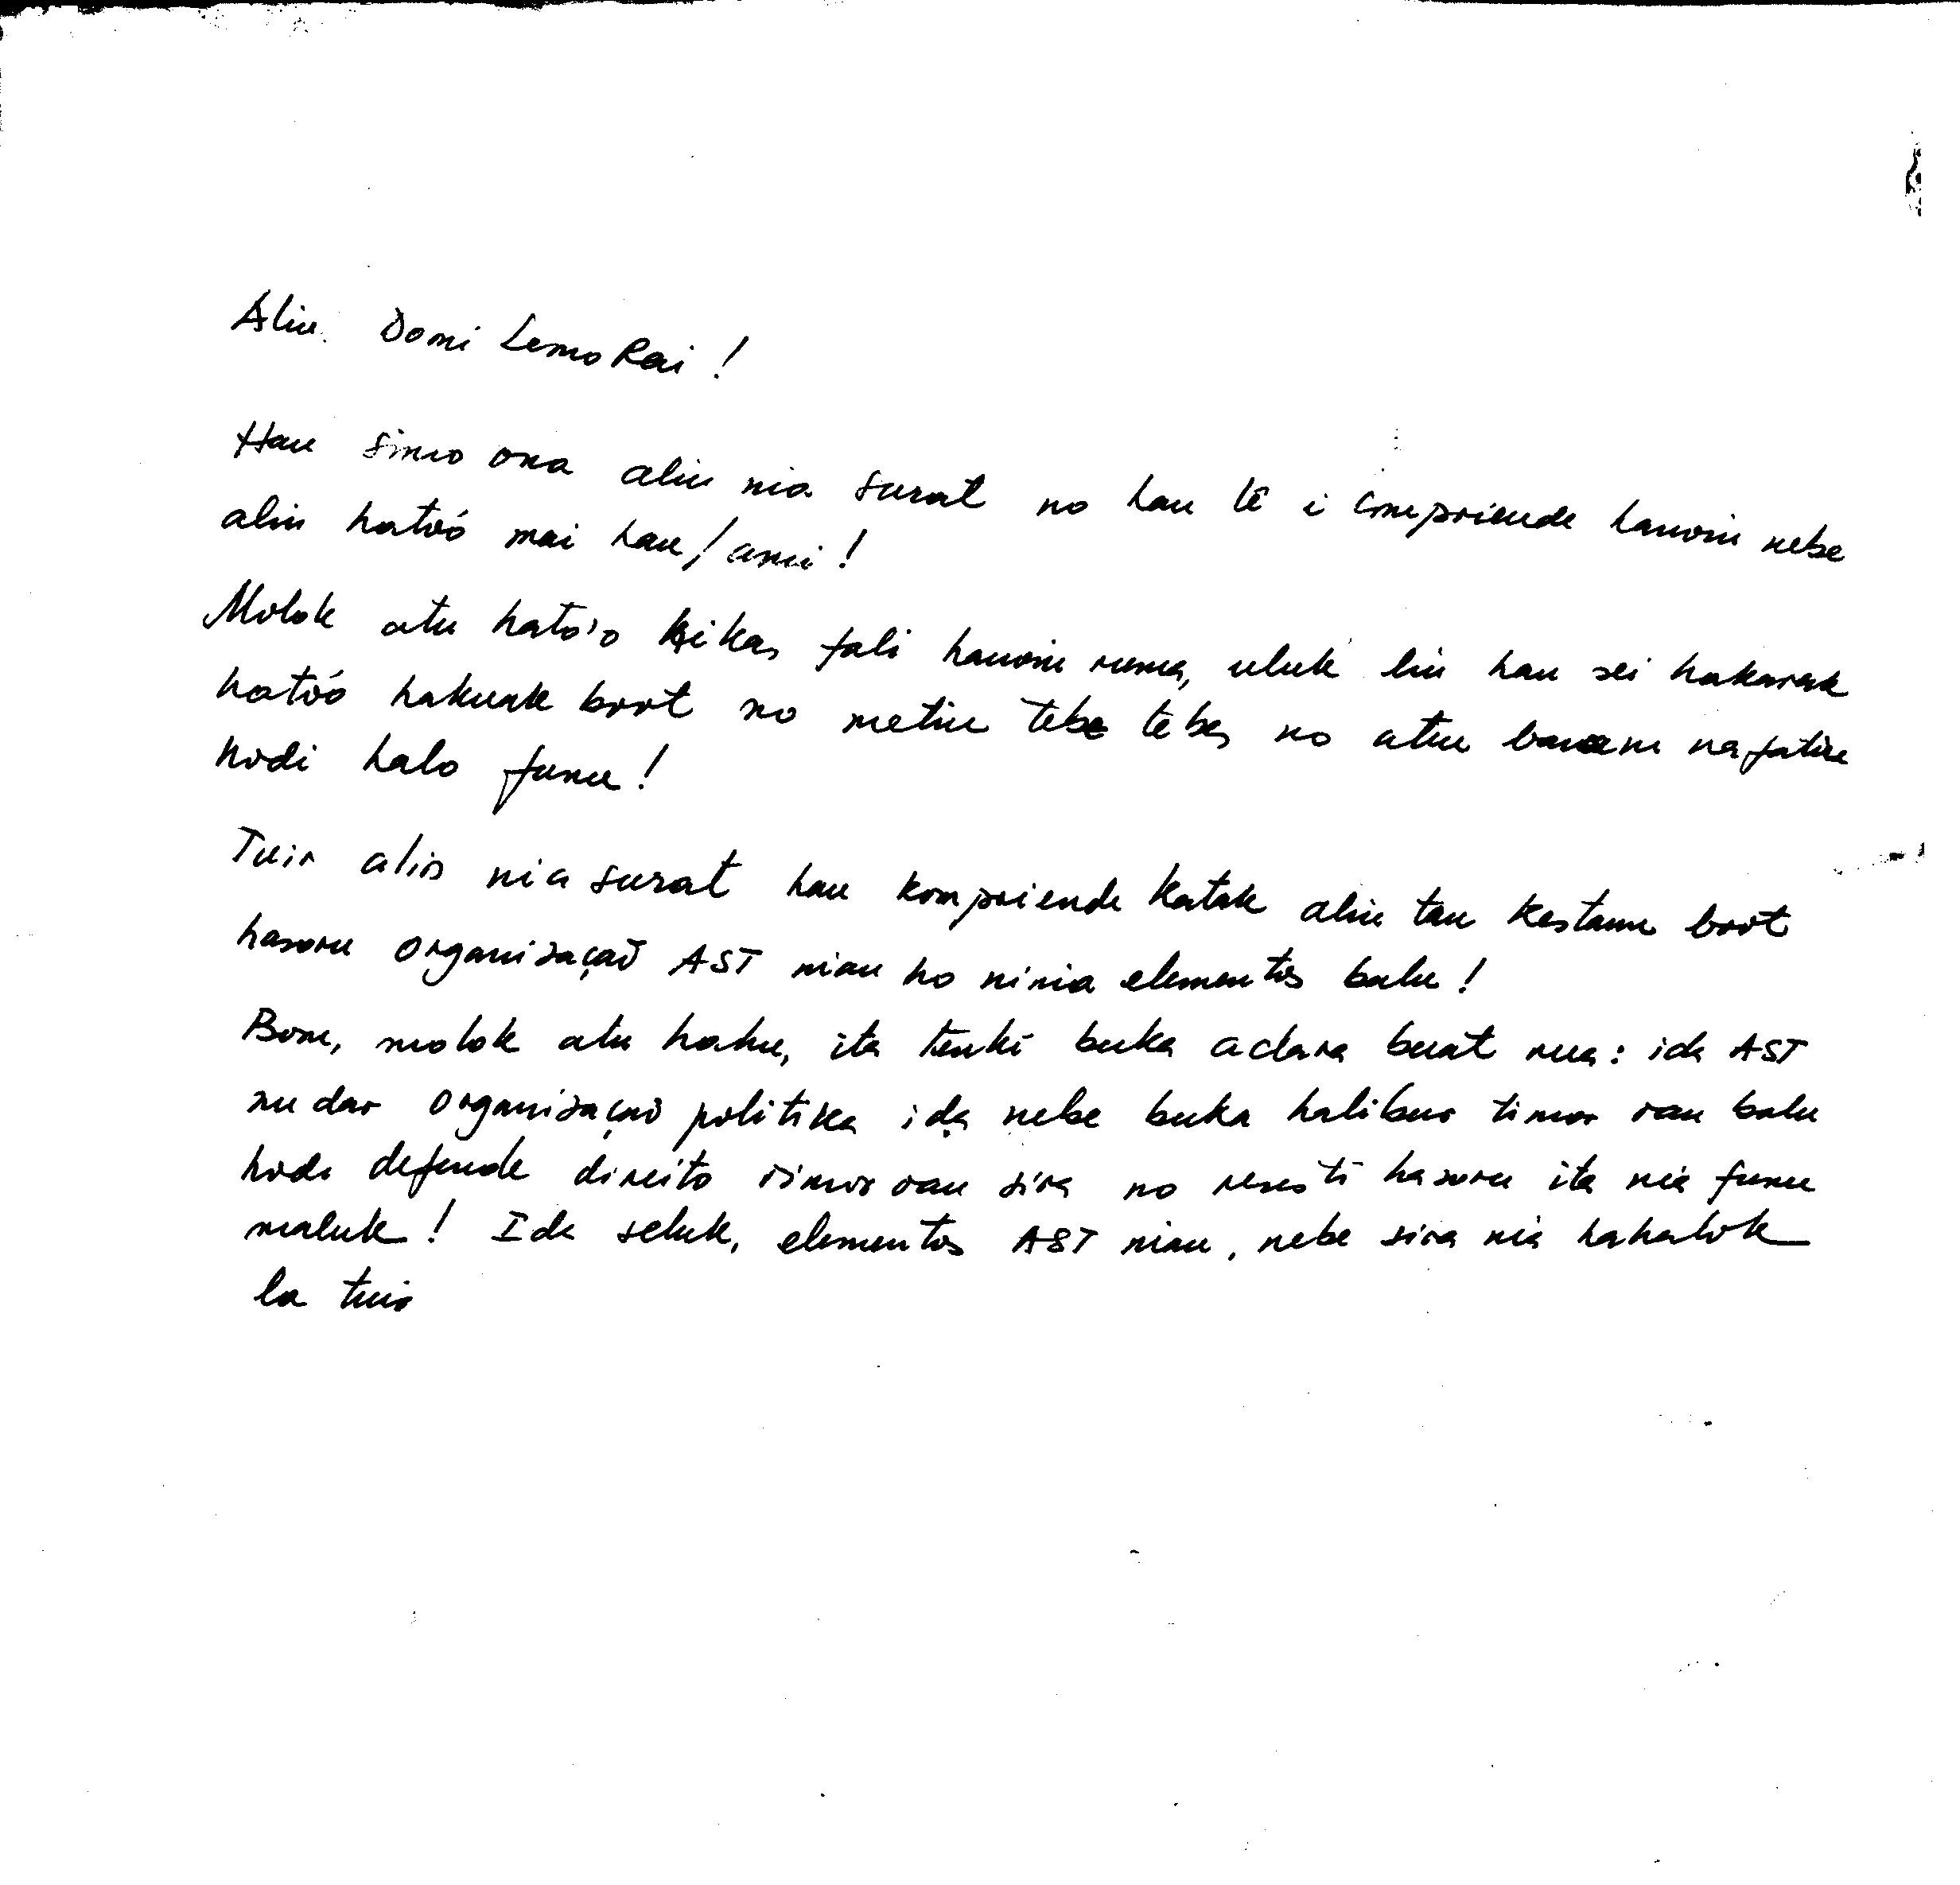 Alin Domi Lemo Rai!
Hau simo ona alin nia surat no hau lê i compriende hanoin nebe
alin hatoó mai hau/ami!
Molok atu hato'o hikas fali hanoin ruma, uluk liu hau sei hakarak
hatoó hakuak boot no metin tebe tebes no atu barani nafatin
hodi halo funu!
Tuir alin nia surat hau kompriende katak alin tau kestaun boot
hasoru organizaçaõ AST nian ho ninia elementos balu!
Bom, molok atu hahu, ita tenki buka aclara buat rua: ida AST
nudar organizaçaõ politika ida nebe buka halibur timor oan balu
hodi defende direito timor oan sira no resisti hasoru ita nia funu
maluk! Ida seluk, elementos AST nian, nebe sira nia hahalok
la tuir